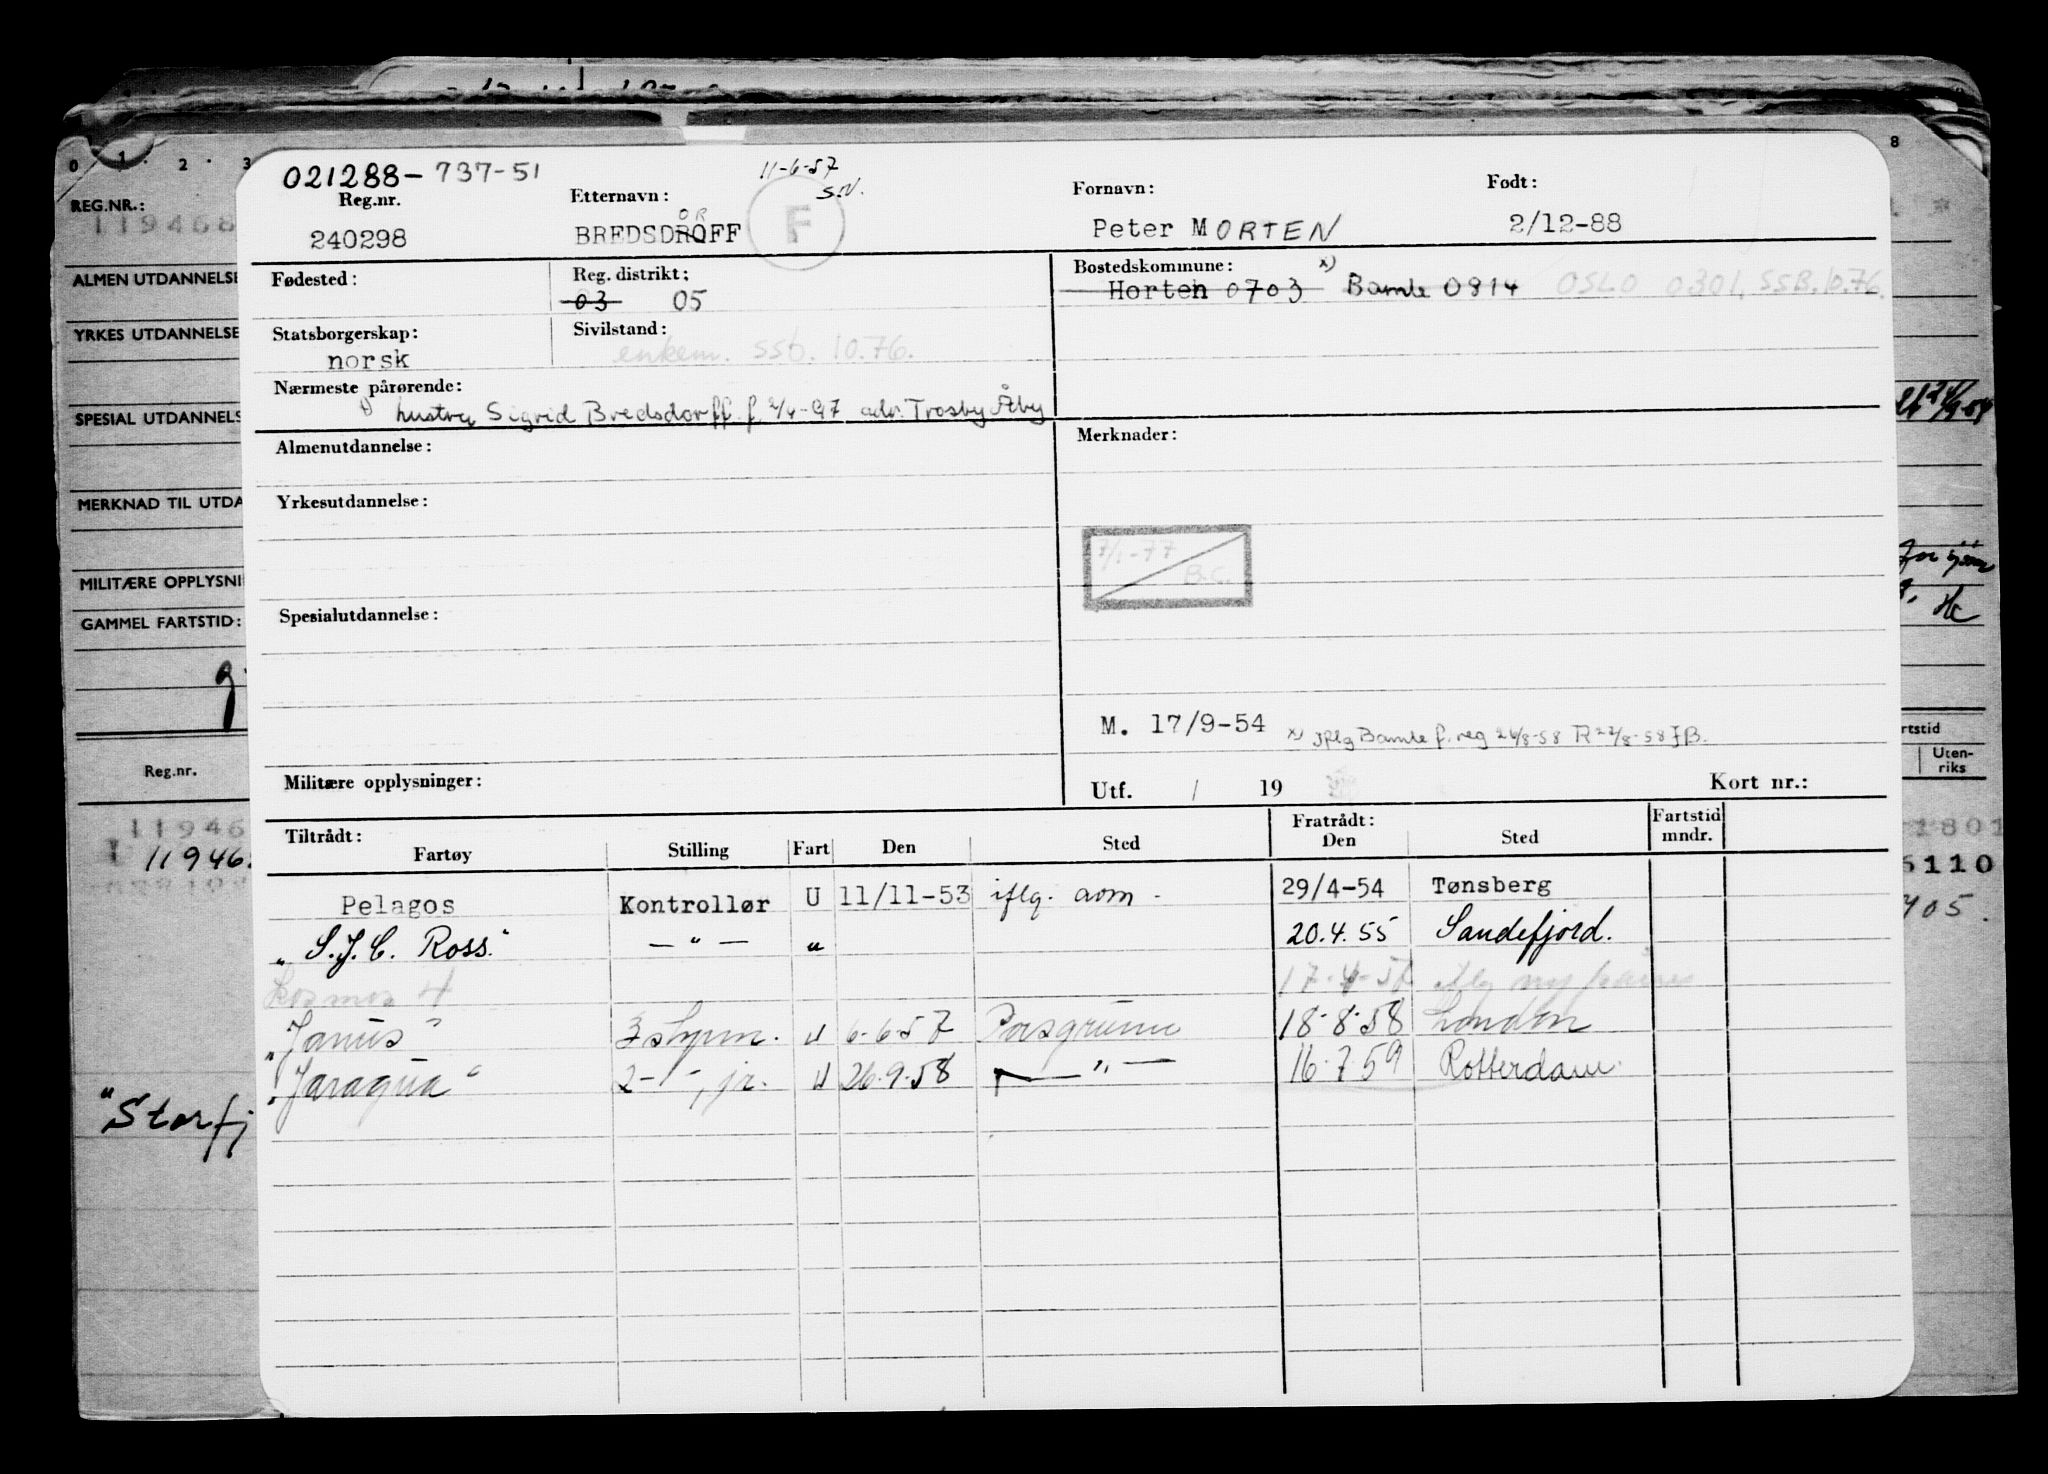 0 1 2 3 8
021288-737-51
11-6-57
S.N.
REG.NR.:
Reg.nr. Etternavn: Fornavn: Født:
119468
240298 BREDSDROFF OR F Peter MORTEN 2/12-88
ALMEN UTDANNELSE
Fødested: Reg. distrikt: Bostedskommune: x)
03 05 Horten 0703 Bamle 0814 OSLO 0301, SSB.10.76.
YRKES UTDANNELSE
Statsborgerskap: Sivilstand:
norsk enkem. ssb. 10.76.
Nærmeste pårørende:
SPESIAL UTDANNELS
x) hustru Sigrid Bredsdorff f. 2/4-97 adr. Trosby Åby
Almenutdannelse: Merknader:
MERKNAD TIL UTDA
Yrkesutdannelse:
7/1-77
B.C.
MILITÆRE OPPLYSNI
GAMMEL FARTSTID:
Hc
Spesialutdannelse:
M. 17/9-54 x) Iflg Bamle f. reg 26/8-58 R 27/8-58 JB.
rtstid
Reg.nr. Uten-
riks
Militære opplysninger: Utf. / 19 Kort nr.:
Tiltrådt: Fratrådt: Fartstid
Fartøy Stilling Fart Den Sted Den Sted mndr.
11946
11946
5110
705.
Pelagos Kontrollør U 11/11-53 iflg. aom - 29/4-54 Tønsberg
"S.J.C. Ross." — " — " 20.4.55 Sandefjord.
Kosmos 4 17-4-57
"Janus" 3 styrm. U 6-6-57 Porsgrunn 18-8-58 London
"Jaragua" 2 - " -, jr. U 26.9.58 — " — 16.7.59 Rotterdam.
"Storfj